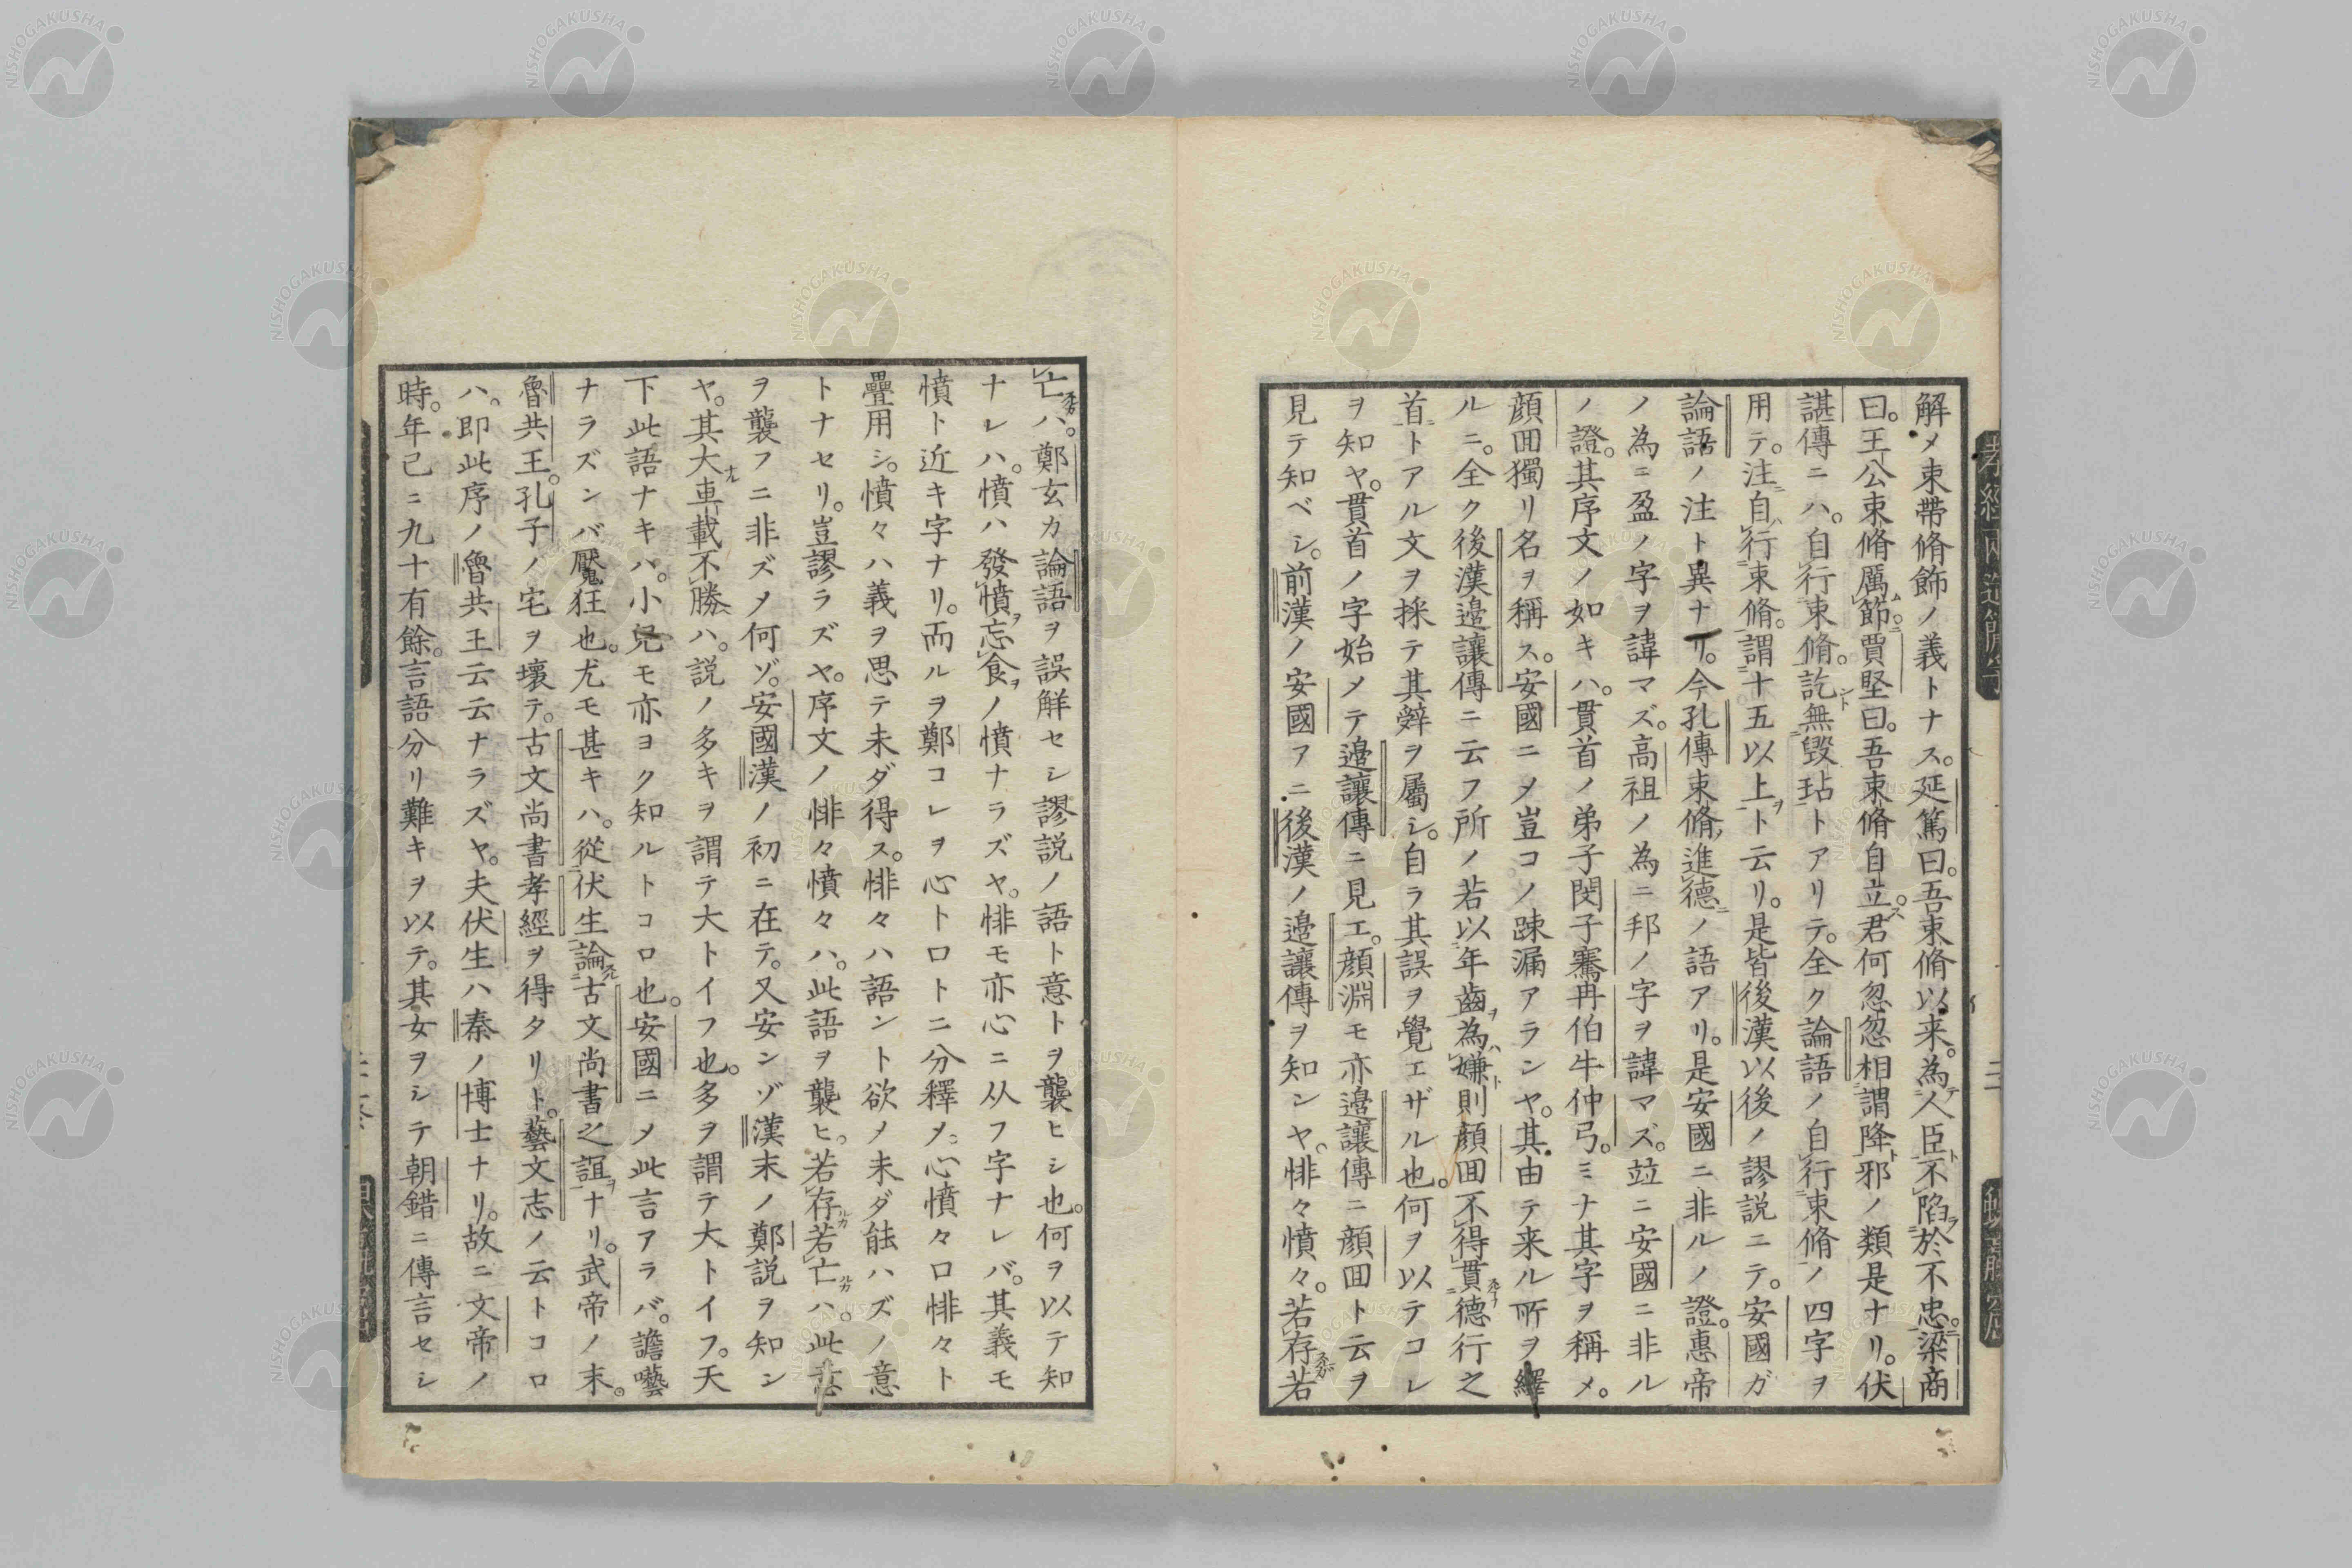 解メ束帶脩飾ノ義トナス。延篤曰。吾束脩以来。為人臣不陷於不忠。梁商
曰。王公束脩厲節。賈堅曰。吾束脩自立。君何忽忽相謂降邪ノ類是ナリ。伏
諶傳ニハ。自行束脩。訖無毀玷トアリテ。全ク論語ノ自行束脩ノ四字ヲ
用テ。注自行束脩。謂十五以上ト云リ。是皆後漢以後ノ謬説ニテ。安國ガ
論語ノ注ト異ナリ。今孔傳束脩進德ノ語アリ。是安國ニ非ルノ證。惠帝
ノ為ニ盈ノ字ヲ諱マズ。高祖ノ為ニ邦ノ字ヲ諱マズ。竝ニ安國ニ非ル
ノ證。其序文ノ如キハ。貫首ノ弟子閔子騫冉伯牛仲弓。ミナ其字ヲ稱メ。
顔囬獨リ名ヲ稱ス。安國ニメ豈コノ踈漏アランヤ。其由テ来ル所ヲ繹
ルニ。全ク後漢邉讓傳ニ云フ所ノ若以年齒為嫌則顔囬不得貫德行之
首トアル文ヲ採テ其辤ヲ屬シ。自ラ其誤ヲ覺エザル也。何ヲ以テコレ
ヲ知ヤ。貫首ノ字始メテ邉讓傳ニ見エ。顔淵モ亦邉讓傳ニ顔囬ト云ヲ
見テ知ベシ。前漢ノ安國アニ後漢ノ邉讓傳ヲ知ンヤ。悱々憤々。若存若
亡ハ。鄭玄カ論語ヲ誤解セシ謬説ノ語ト意トヲ襲ヒシ也。何ヲ以テ知
ナレハ。憤ハ發憤忘食ノ憤ナラズヤ。悱モ亦心ニ从フ字ナレバ。其義モ
憤ト近キ字ナリ。而ルヲ鄭コレヲ心ト口トニ分釋メ。心憤々口悱々ト
疊用シ。憤々ハ義ヲ思テ未ダ得ス。悱々ハ語ント欲メ未ダ能ハズノ意
トナセリ。豈謬ラズヤ。序文ノ悱々憤々ハ。此語ヲ襲ヒ。若存若亡ハ。此意
ヲ襲フニ非ズメ何ゾ。安國漢ノ初ニ在テ。又安ンゾ漢末ノ鄭説ヲ知ン
ヤ。其大車載不勝ハ。説ノ多キヲ謂テ大トイフ也。多ヲ謂テ大トイフ。天
下此語ナキハ。小兒モ亦ヨク知ルトコロ也。安國ニメ此言アラバ。譫囈
ナラズンバ魘狂也。尤モ甚キハ。從伏生論古文尚書之誼ナリ。武帝ノ末。
魯共王。孔子ノ宅ヲ壞テ。古文尚書孝經ヲ得タリト。藝文志ノ云トコロ
ハ。即此序ノ魯共王云云ナラズヤ。夫伏生ハ秦ノ博士ナリ。故ニ文帝ノ
時。年已ニ九十有餘。言語分リ難キヲ以テ。其女ヲシテ朝錯ニ傳言セシ